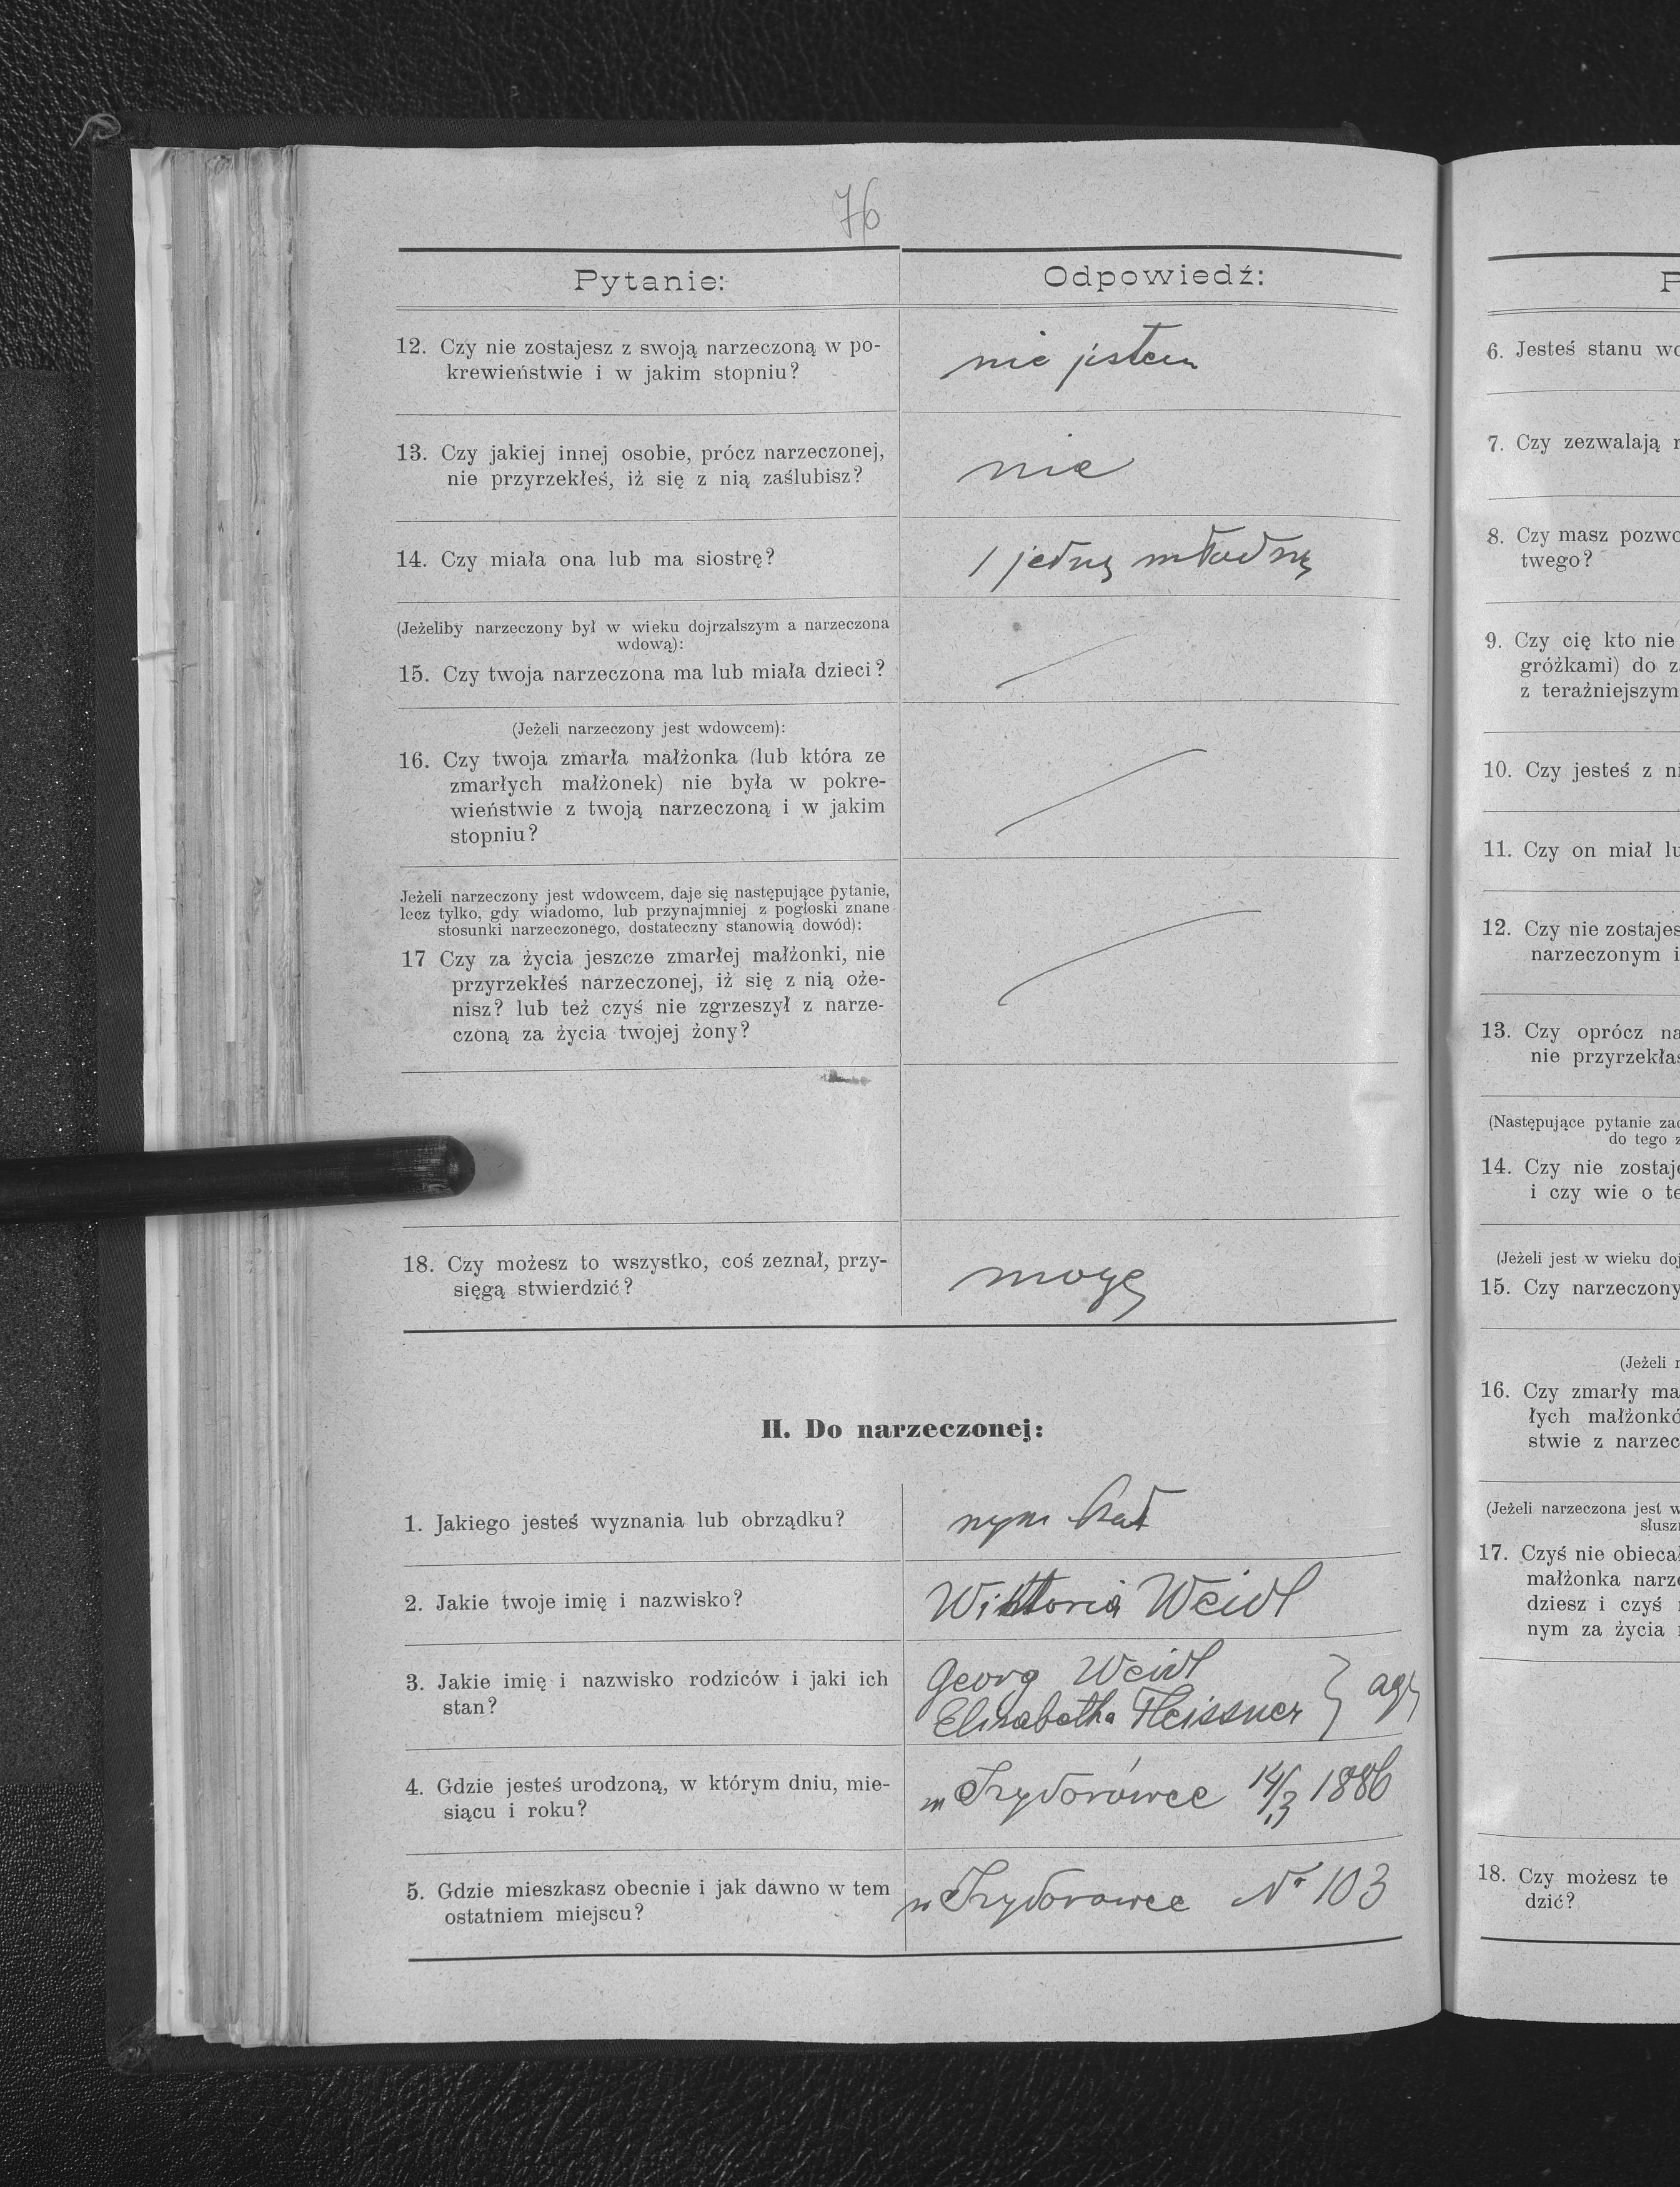 76
Pytanie:
Odpowiedź:
12. Czy nie zostajesz z swoją narzeczoną w po-
krewieństwie i w jakim stopniu?
nie jestem
13. Czy jakiej innej osobie, prócz narzeczonej,
nie przyrzekłeś, iż się z nią zaślubisz?
nie
14. Czy miała ona lub ma siostrę?
1 jedną
(Jeżeliby narzeczony był w wieku dojrzalszym a narzeczona
wdową):
15. Czy twoja narzeczona ma lub miała dzieci?
(Jeżeli narzeczony jest wdowcem):
16. Czy twoja zmarła małżonka (lub która ze
zmarłych małżonek) nie była w pokre-
wieństwie z twoją narzeczoną i w jakim
stopniu?
Jeżeli narzeczony jest wdowcem, daje się następujące pytanie,
lecz tylko, gdy wiadomo, lub przynajmniej z pogłoski znane
stosunki narzeczonego, dostateczny stanowią dowód):
17 Czy za życia jeszcze zmarłej małżonki, nie
przyrzekłeś narzeczonej, iż się z nią oże-
nisz? lub też czyś nie zgrzeszył z narze-
czoną za życia twojej żony?
18. Czy możesz to wszystko, coś zeznał, przy-
sięgą stwierdzić?
mogę
II. Do narzeczonej:
1. Jakiego jesteś wyznania lub obrządku?
rzym kat
2. Jakie twoje imię i nazwisko?
Wiktoria Weidl
3. Jakie imię i nazwisko rodziców i jaki ich
stan?
Georg Weidl
Elisabetha Fleissner } agr
4. Gdzie jesteś urodzoną, w którym dniu, mie-
siącu i roku?
w Izydorówce 14/3 1886
5. Gdzie mieszkasz obecnie i jak dawno w tem
ostatniem miejscu?
w Izydorowce Nr 103
P
6. Jesteś stanu wo
7. Czy zezwalają r
8. Czy masz pozwo
twego?
9. Czy cię kto nie
gróżkami) do z
z teraźniejszym
10. Czy jesteś z ni
11. Czy on miał lu
12. Czy nie zostajes
narzeczonym i
13. Czy oprócz na
nie przyrzekłaś
(Następujące pytanie zad
do tego z
14. Czy nie zostaje
i czy wie o te
(Jeżeli jest w wieku doj
15. Czy narzeczony
(Jeżeli n
16. Czy zmarły ma
łych małżonkó
stwie z narzec
(Jeżeli narzeczona jest w
słuszn
17. Czyś nie obiecał
małżonka narze
dziesz i czyś n
nym za życia
18. Czy możesz te
dzić?